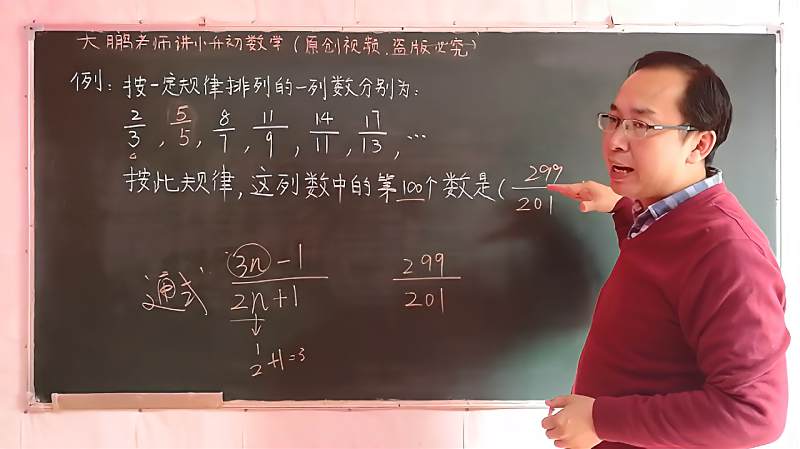 大鹏老师讲小升初数学(原创视频,盗版必究)
例:按一定规律排列的一列数分别为:
2/3, 5/5, 8/7, 11/9, 14/11, 17/13, …
按此规律,这列数中的第100个数是( 299/201
通式 3n-1/2n+1 299/201
1/2+1=3